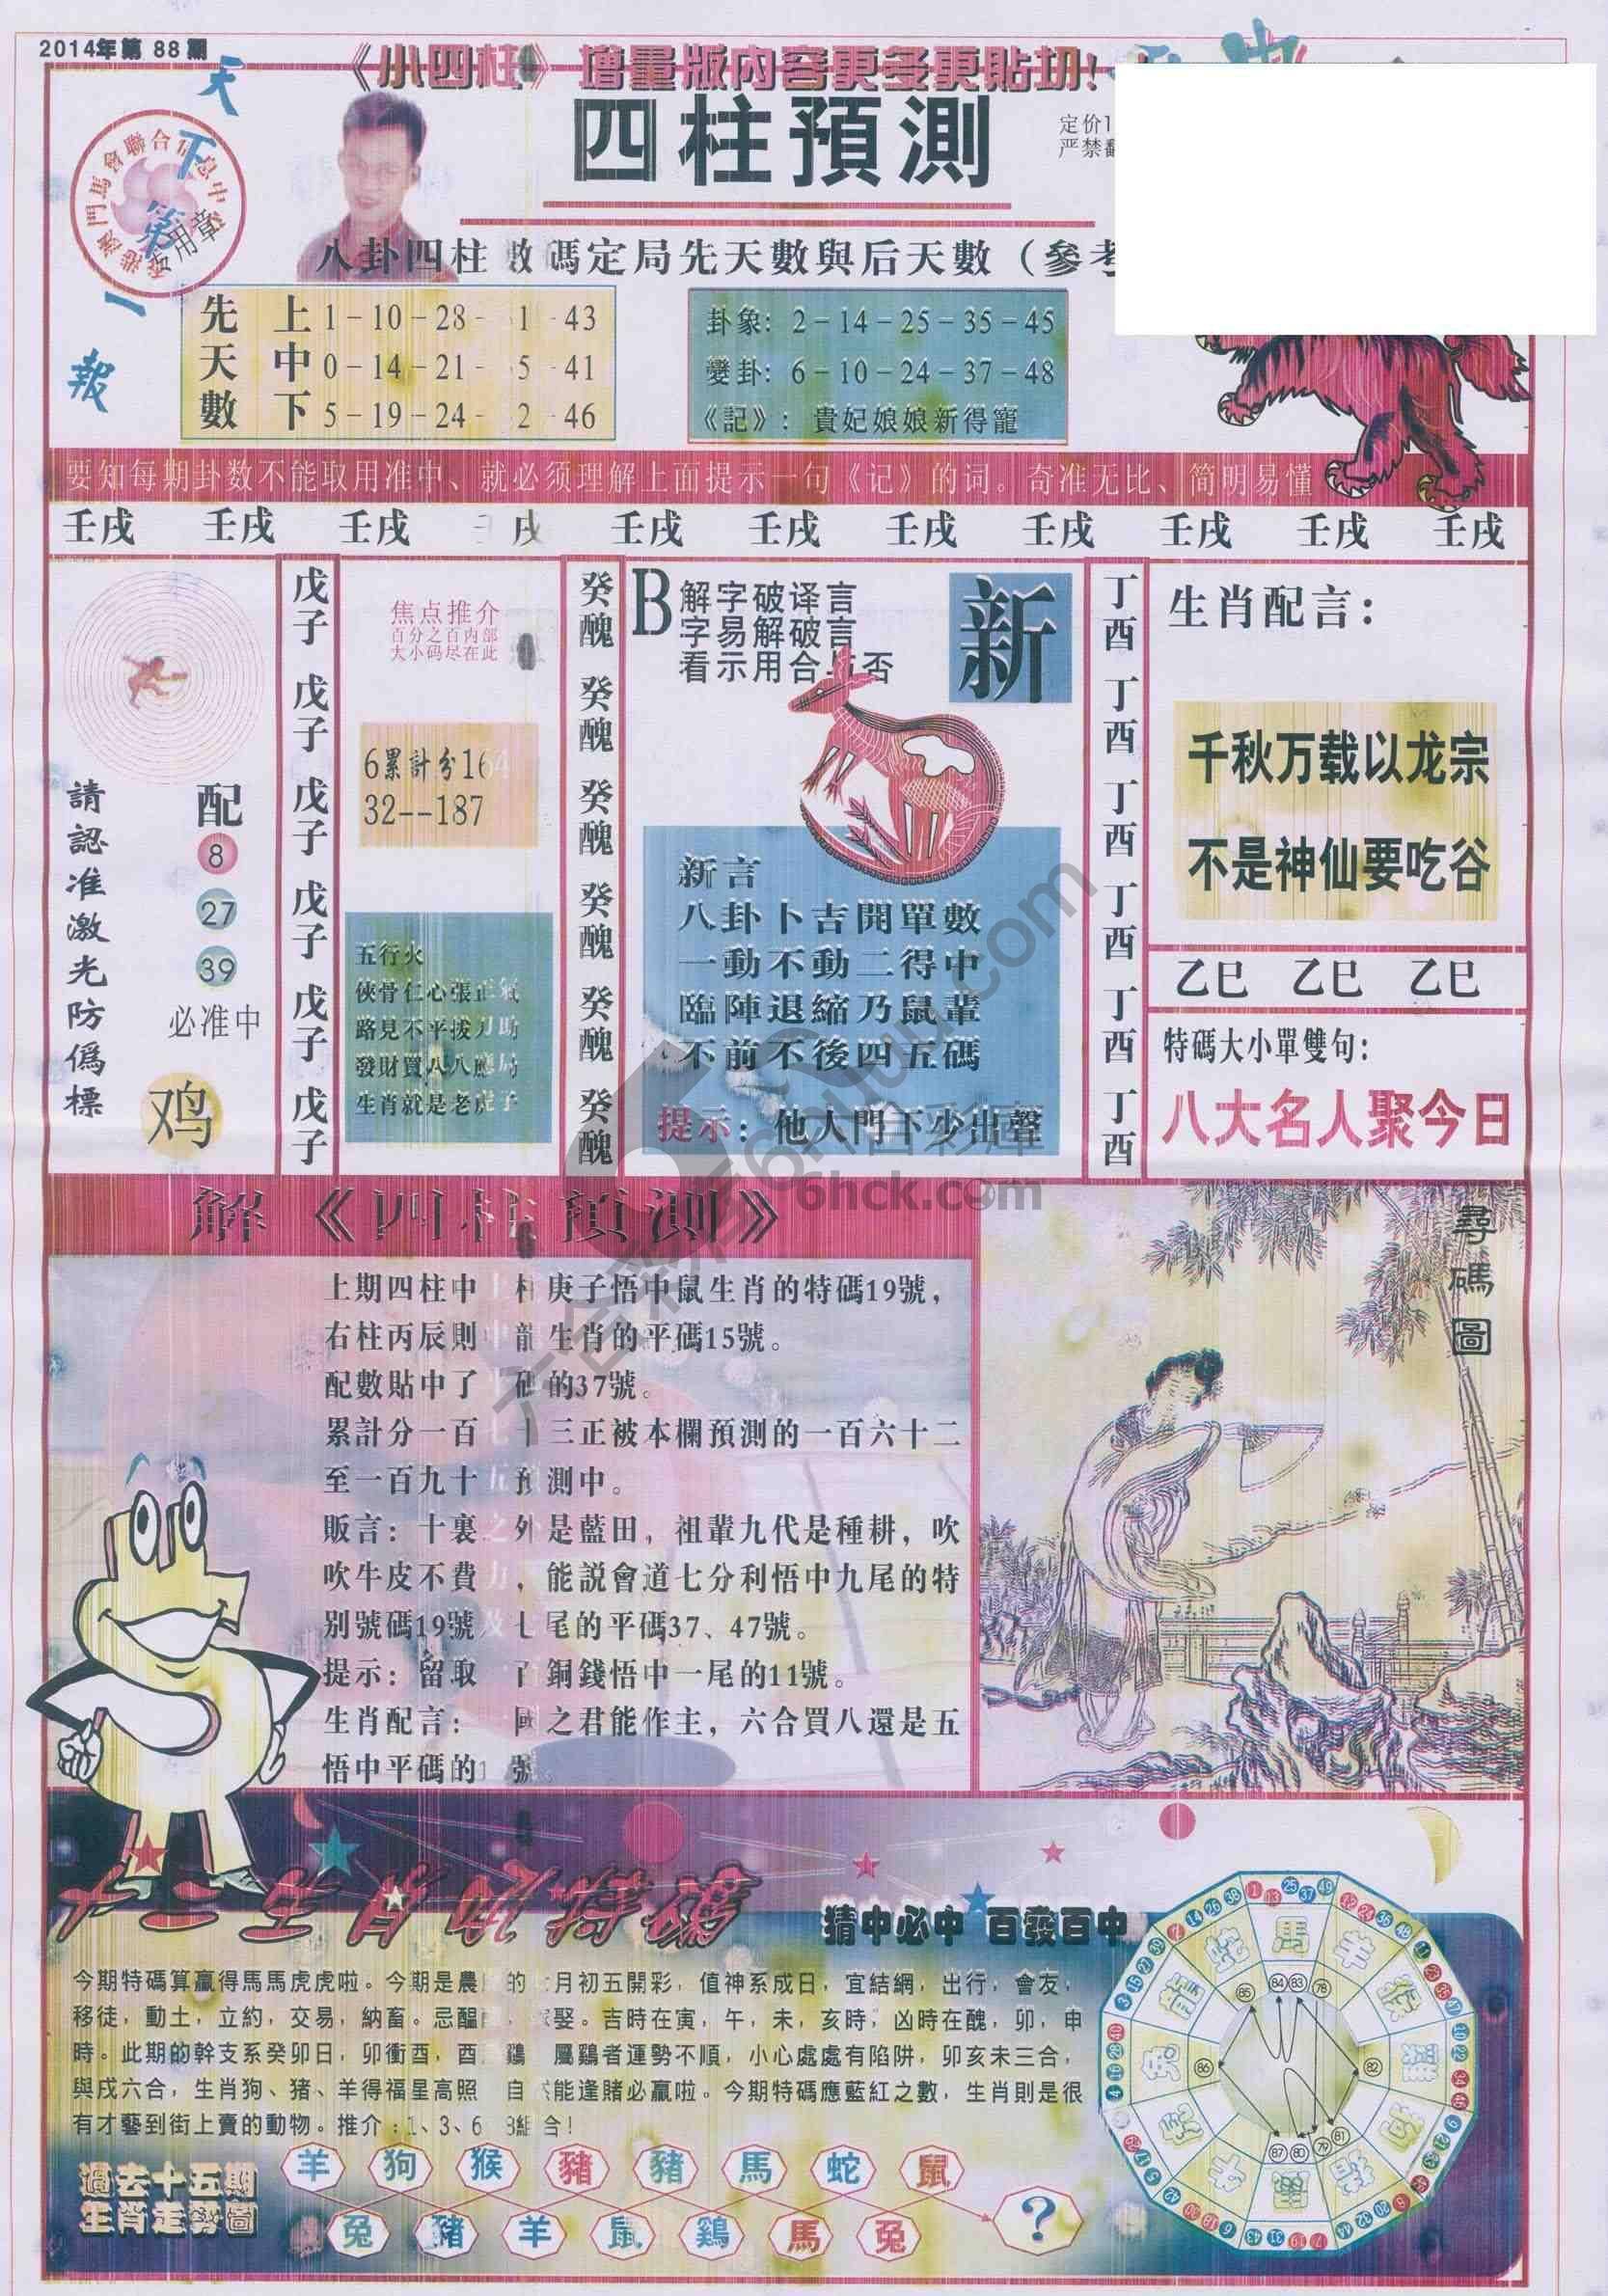 2014年第 88 期
《小四柱》增量版內容更多更貼切!
天下第一報
四柱預測
定价1
严禁翻
八卦四柱數碼定局先天數與后天數（參考
先天數
上 1-10-28- 1 -43
中 0-14-21- 5 -41
下 5-19-24- 2 -46
卦象: 2-14-25-35-45
變卦: 6-10-24-37-48
《記》: 貴妃娘娘新得寵
要知每期卦数不能取用准中、就必须理解上面提示一句《记》的词。奇准无比、简明易懂
壬戌 壬戌 壬戌 戌 壬戌 壬戌 壬戌 壬戌 壬戌 壬戌 壬戌
請認准激光防僞標
配
8
27
39
必准中
鸡
戊子 戊子 戊子 戊子 戊子 戊子
焦点推介
百分之百内部
大小码尽在此
6累計分164
32--187
五行火
俠骨仁心張正氣
路見不平拔刀助
發財買八八應局
生肖就是老虎子
癸醜 癸醜 癸醜 癸醜 癸醜 癸醜
B
解字破译言
字易解破言
看示用合与否
新
新言
八卦卜吉開單數
一動不動二得中
臨陣退縮乃鼠輩
不前不後四五碼
提示: 他人門下少出聲
丁酉 丁酉 丁酉 丁酉 丁酉 丁酉
生肖配言:
千秋万载以龙宗
不是神仙要吃谷
乙巳 乙巳 乙巳
特碼大小單雙句:
八大名人聚今日
六合彩库6hcku.com
六合彩庫
6hck.com
解《四柱預測》
上期四柱中 柱庚子悟中鼠生肖的特碼19號，
右柱丙辰則中龍生肖的平碼15號。
配數貼中了 碼的37號。
累計分一百七十三正被本欄預測的一百六十二
至一百九十五預測中。
販言: 十裏之外是藍田，祖輩九代是種耕，吹
吹牛皮不費力，能説會道七分利悟中九尾的特
別號碼19號及七尾的平碼37、47號。
提示: 留取 銅錢悟中一尾的11號。
生肖配言: 一國之君能作主，六合買八還是五
悟中平碼的1 號
尋碼圖
十二生肖配特碼
猜中必中 百發百中
今期特碼算贏得馬馬虎虎啦。今期是農 的 月初五開彩，值神系成日，宜結網，出行，會友，
移徒，動土，立約，交易，納畜。忌醞 ，嫁娶。吉時在寅，午，未，亥時，凶時在醜，卯，申
時。此期的幹支系癸卯日，卯衝酉，酉 鷄 屬鷄者運勢不順，小心處處有陷阱，卯亥未三合，
與戌六合，生肖狗、猪、羊得福星高照 自 能逢賭必贏啦。今期特碼應藍紅之數，生肖則是很
有才藝到街上賣的動物。推介:1、3、6 8組合!
過去十五期
生肖走勢圖
羊 狗 猴 豬 豬 馬 蛇 鼠
兔 豬 羊 鼠 鷄 馬 兔 ?